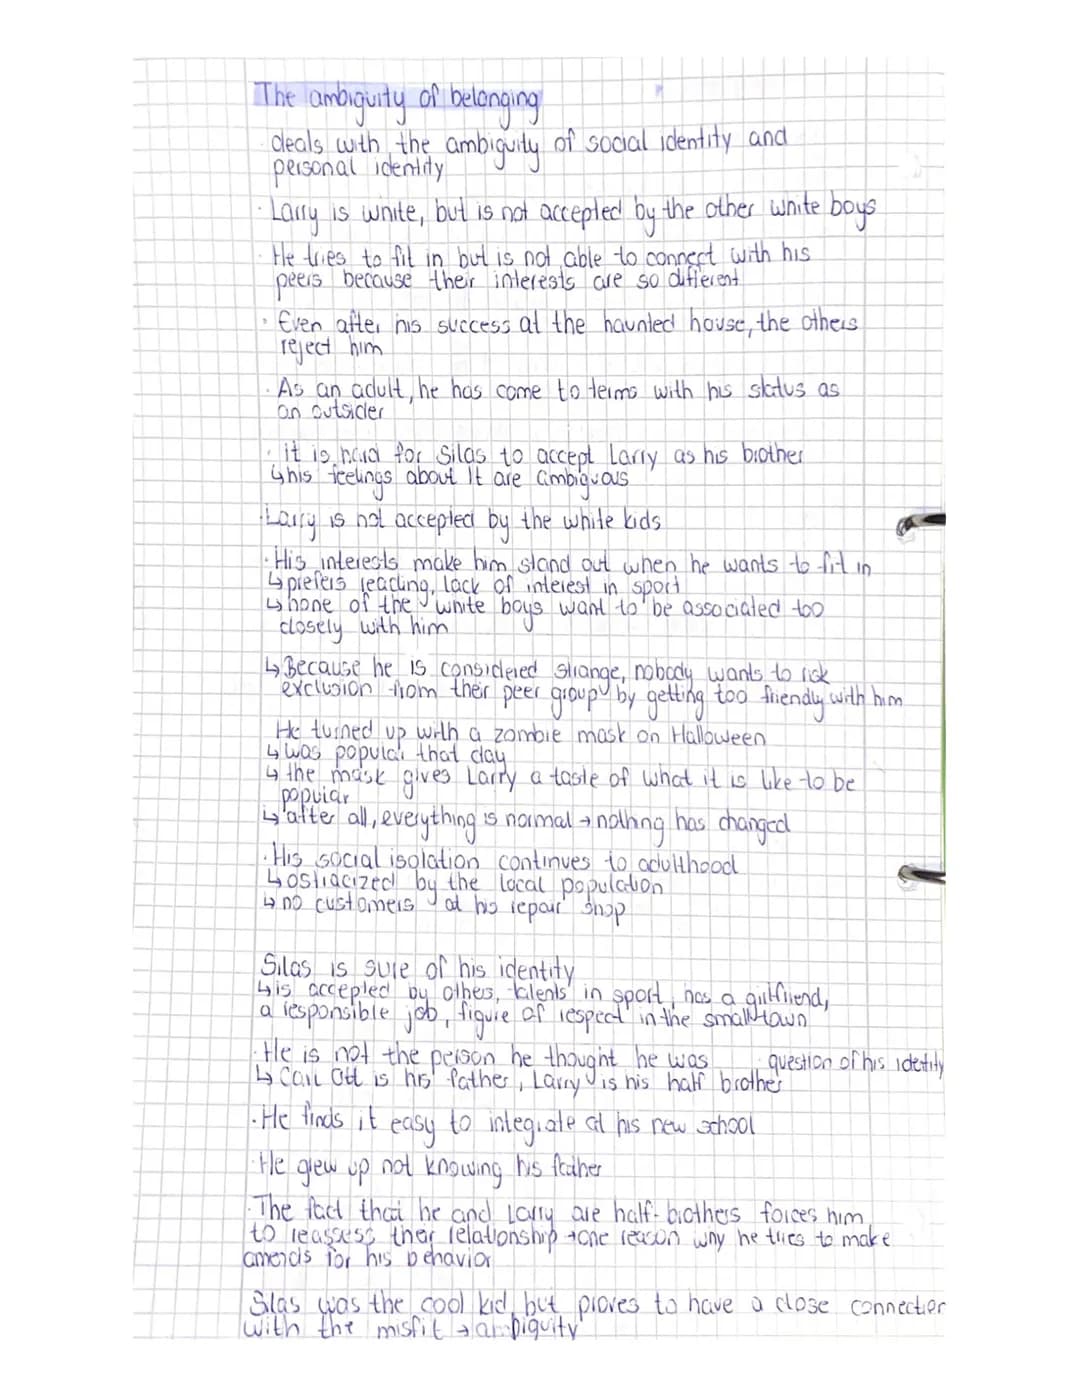 The ambiguity of belonging
deals with the ambiguity of social identity and
personal identity
· Larry is white, but is not accepted by the other white boys
· He tries to fit in but is not able to connect with his
peers because their interests are so different
· Even after his success at the haunted house, the others
reject him
· As an adult, he has come to terms with his status as
an outsider
· it is hard for Silas to accept Larry as his brother
↳ his feelings about it are ambiguous
· Larry is not accepted by the white kids
· His interests make him stand out when he wants to fit in
↳ prefers reading, lack of interest in sport
↳ none of the white boys want to be associated too
closely with him
↳ Because he is considered strange, nobody wants to risk
exclusion from their peer group by getting too friendly with him
He turned up with a zombie mask on Halloween
↳ was popular that day
↳ the mask gives Larry a taste of what it is like to be
popular
↳ after all, everything is normal → nothing has changed
· His social isolation continues to adulthood
↳ ostracized by the local population
↳ no customers at his repair shop
Silas is sure of his identity
↳ is accepted by others, talents in sport, has a girlfriend,
a responsible job, figure of respect in the small town
· He is not the person he thought he was · question of his idetity
↳ Carl Ott is his father, Larry is his half brother
· He finds it easy to integrate at his new school
· He grew up not knowing his father
· The fact that he and Larry are half-brothers forces him
to reassess their relationship → one reason why he tries to make
amends for his behavior
Silas was the cool kid, but proves to have a close connection
with the misfit → ambiguity